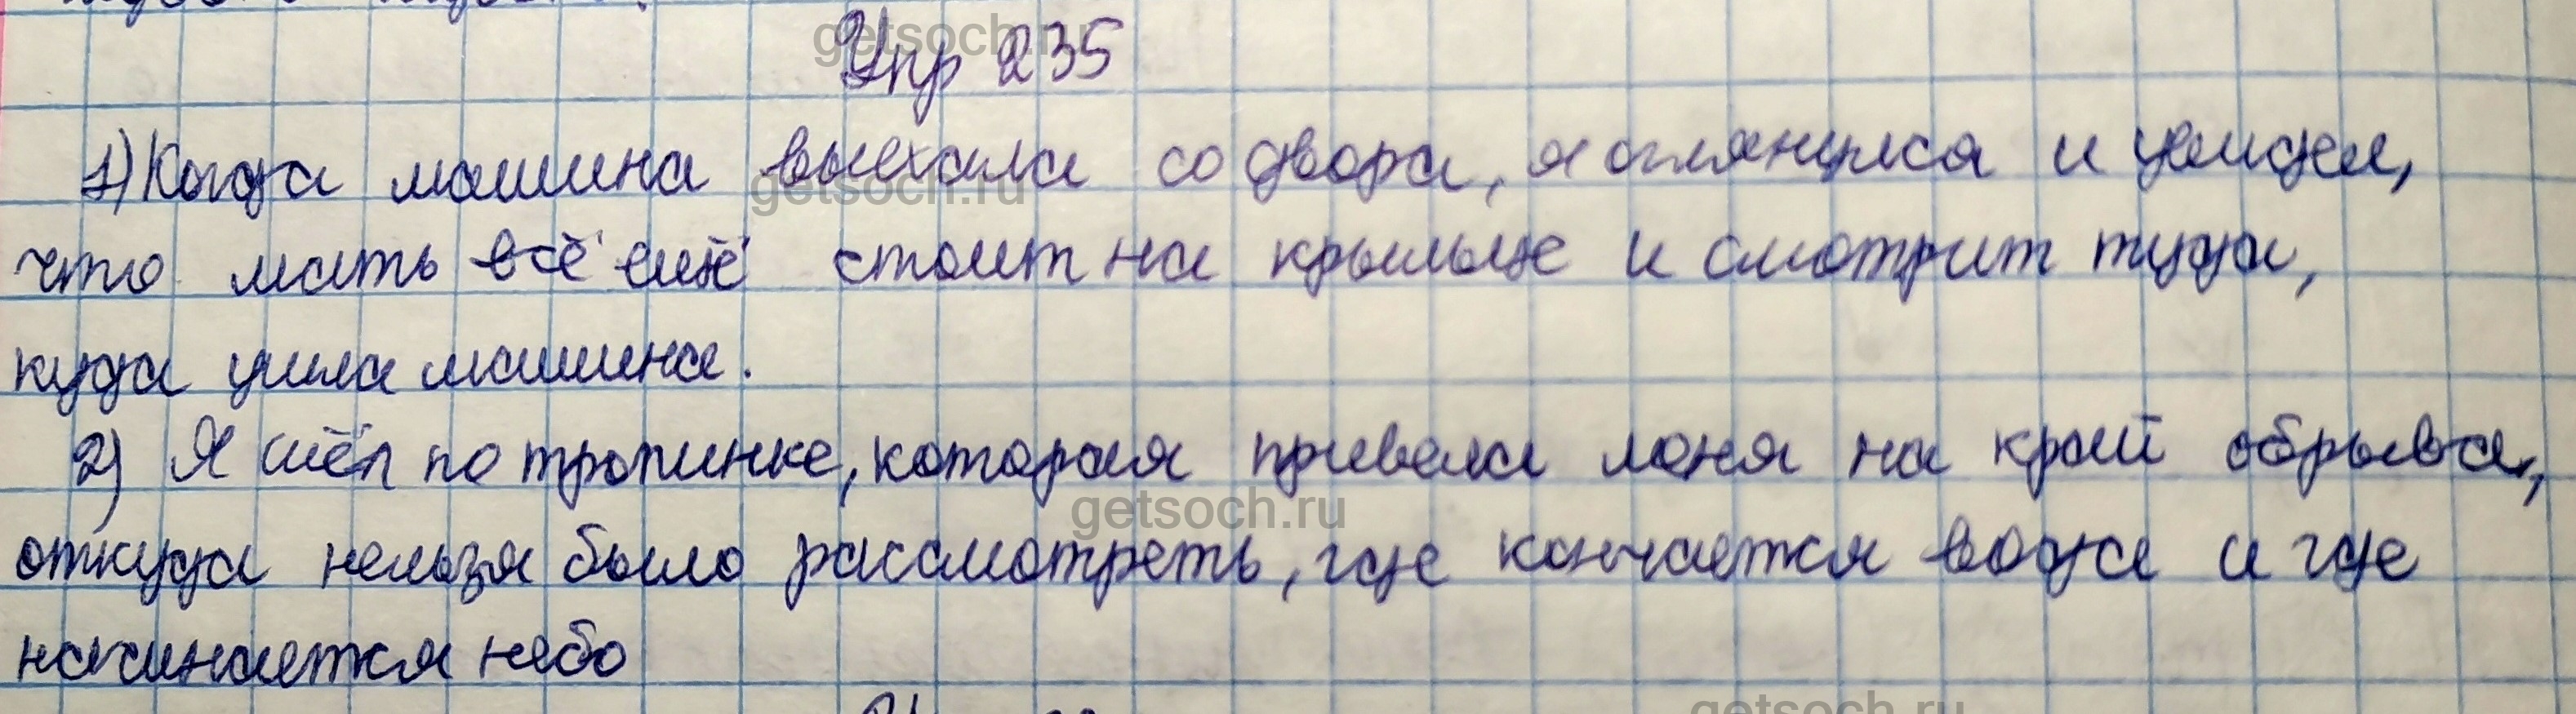 Упр 235
1) Когда машина выехала со двора, я оглянулся и увидел,
что мать всё ещё стоит на крыльце и смотрит туда,
куда ушла машина.
2) Я шёл по тропинке, которая привела меня на край обрыва,
откуда нельзя было рассмотреть, где кончается вода и где
начинается небо
getsoch.ru
getsoch.ru
getsoch.ru
getsoch.ru